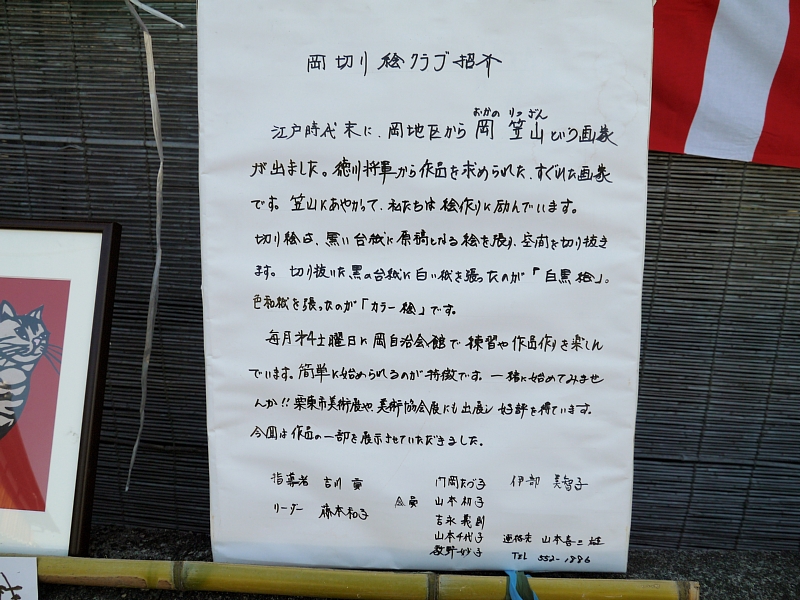 岡切り絵クラブ紹介
おかの りつざん
江戸時代末に、岡地区から岡 笠山という画家
が出ました。徳川将軍から作品を求められた、すぐれた画家
です。笠山にあやかって、私たちは絵作りに励んでいます。
切り絵は、黒い台紙に原稿となる絵を張り、空間を切り抜き
ます。切り抜いた黒の台紙に白い紙を張ったのが「白黒絵」。
色和紙を張ったのが「カラー絵」です。
毎月第4土曜日に岡自治会館で練習や作品作りを楽しん
でいます。簡単に始められるのが特徴です。一緒に始めてみませ
んか!!栗東市美術展や美術協会展にも出展し好評を得ています。
今回は作品の一部を展示させていただきました。
指導者 吉川 實
リーダー 藤本和子
会員
門岡たづ子 伊部 美智子
山本初子
吉永 義則
山本千代子
牧野妙子
連絡先 山本喜三雄
TEL 552-1886